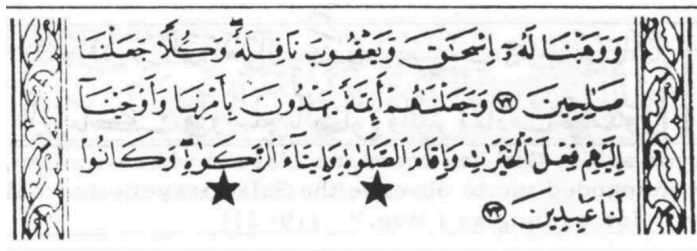 وَوَهَبْنَا لَهُۥٓ إِسْحَٰقَ وَيَعْقُوبَ نَافِلَةً ۖ وَكُلًّا جَعَلْنَا
صَٰلِحِينَ ٧٢ وَجَعَلْنَٰهُمْ أَئِمَّةً يَهْدُونَ بِأَمْرِنَا وَأَوْحَيْنَآ
إِلَيْهِمْ فِعْلَ ٱلْخَيْرَٰتِ وَإِقَامَ ٱلصَّلَوٰةِ وَإِيتَآءَ ٱلزَّكَوٰةِ ۖ وَكَانُوا۟
لَنَا عَٰبِدِينَ ٧٣